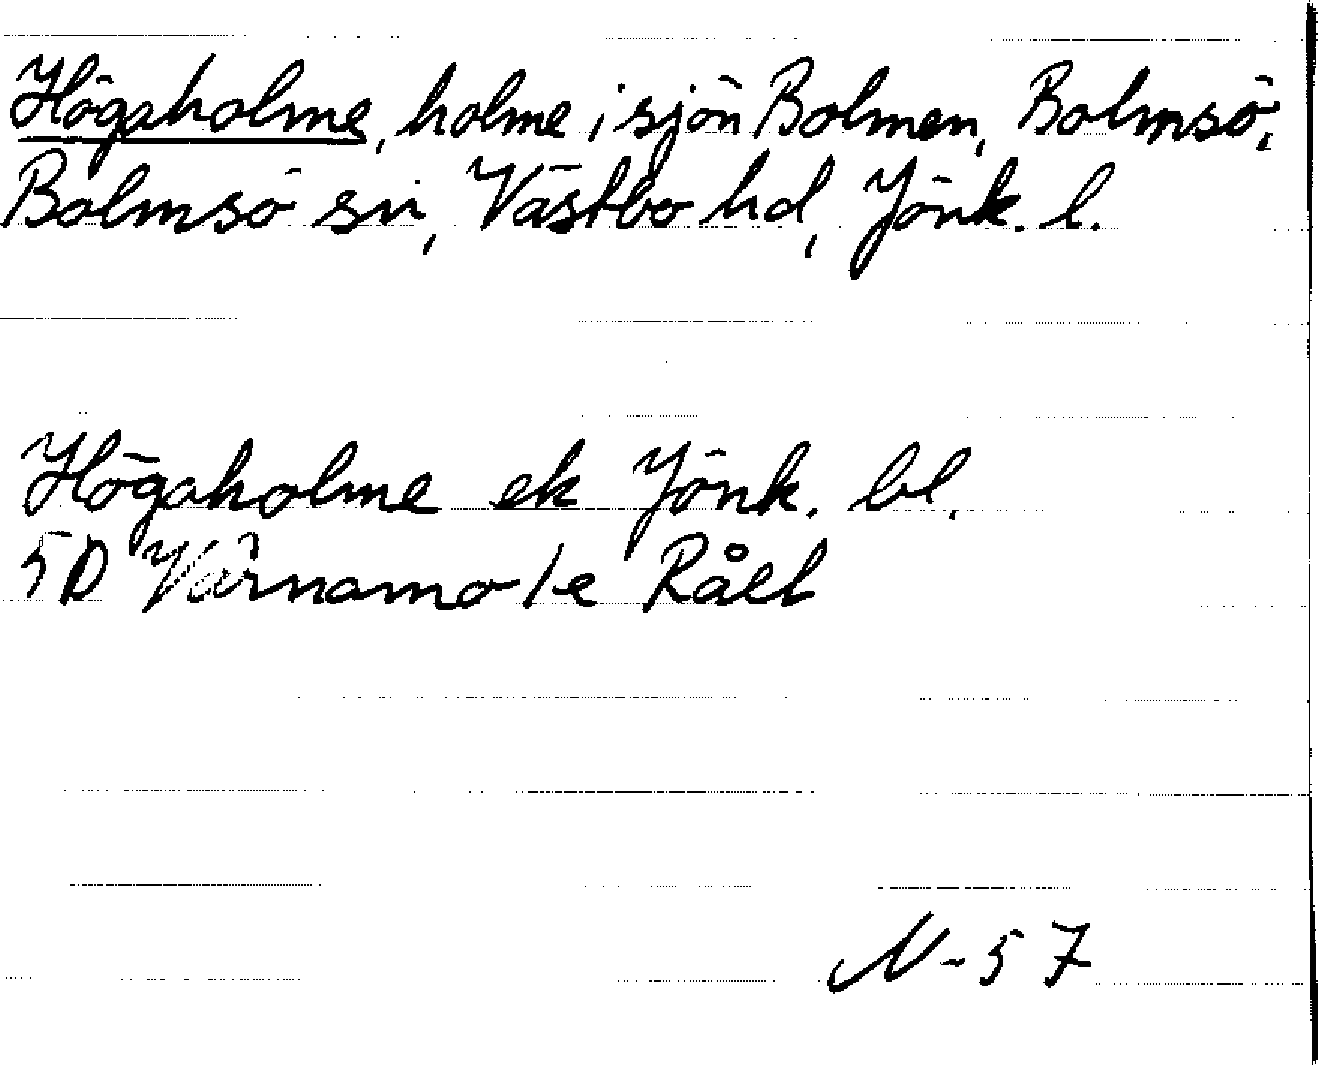 Högaholme, holme i sjön Bolmen, Bolmsö,
Bolmsö sn, Västbo hd, Jönk. l.
Högaholme ek Jönk. bl.
5D Värnamo 1e RåeB
N-57